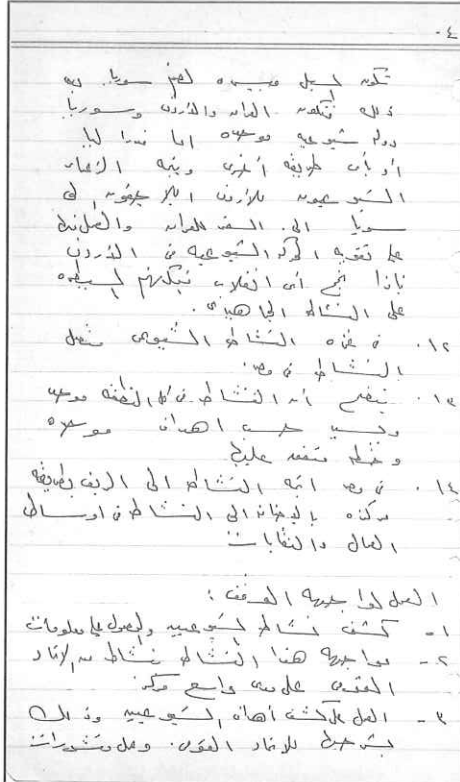 ٤-
تكون لسبل ميسره لضم سوريا
ذلك فتكون العراق والأردن وسوريا
دوله شيوعيه موحده اما فدراليا
أو بأى طريقه أخرى ويتجه الزعماء
الشيوعيون للأردن اللاجئون الى
سوريا الى السفر للعراق والعمل
على تقويه الحركه الشيوعيه فى الأردن
فاذا نجح أى انقلاب فيمكنهم السيطره
على النشاط الجماهيرى.
١٢. فى غزه النشاط الشيوعى مثل
النشاط فى مصر.
١٣. يتضح أن النشاط فى كل المنطقه موحد
ويسير حسب اهداف موحده
وخطه متفق عليها
١٤. فى مصر اتجه النشاط الى الريف بطريقه
مركزه بالإضافه الى النشاط فى اوساط
العمال والنقابات
العمل لمواجهه الموقف:
١- كشف نشاط الشيوعيين والحصول على معلومات
٢- مواجهه هذا النشاط بنشاط من الاتحاد
القومى على مدى واسع مركز.
٣- العمل على كشف أهداف الشيوعيين وذلك
بشرحها للاتحاد القومى. وعمل منشورات